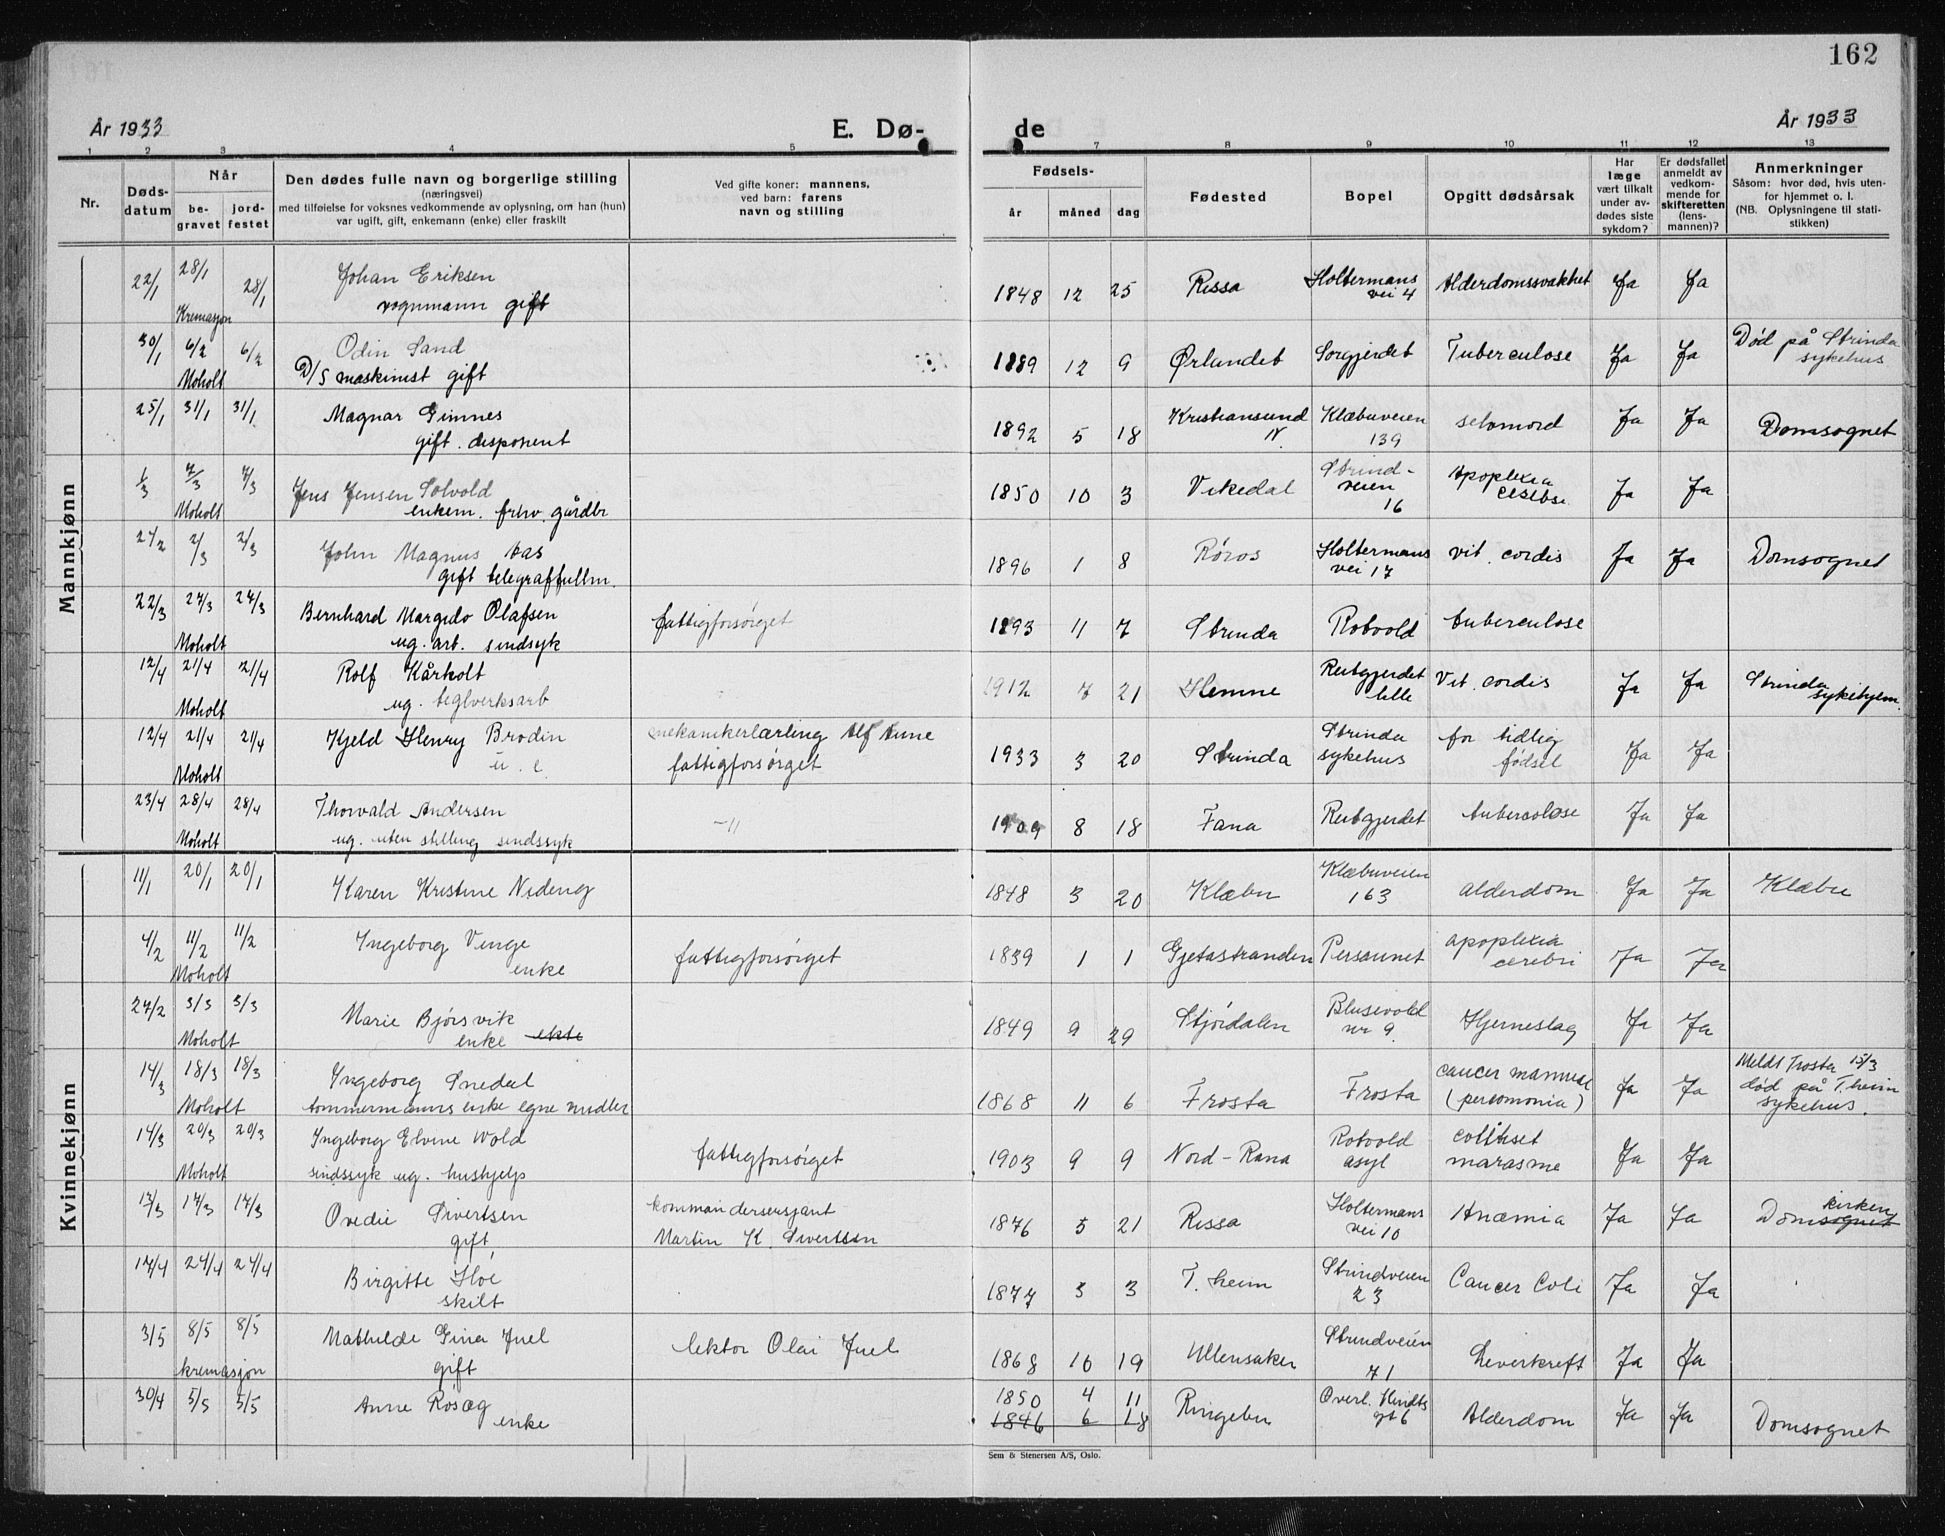 162
År 1933
E. Dø-
de
År 1933
1 2 3 4 5 7 8 9 10 11 12 13
Nr.
Døds-
datum
Når
be-
gravet
jord-
festet
Den dødes fulle navn og borgerlige stilling
(næringsvei)
med tilføielse for voksnes vedkommende av oplysning, om han (hun)
var ugift, gift, enkemann (enke) eller fraskilt
Ved gifte koner: mannens,
ved barn: farens
navn og stilling
Fødsels-
år måned dag
Fødested
Bopel
Opgitt dødsårsak
Har
læge
vært tilkalt
under av-
dødes siste
sykdom?
Er dødsfallet
anmeldt av
vedkom-
mende for
skifteretten
(lens-
mannen)?
Anmerkninger
Såsom: hvor død, hvis uten-
for hjemmet o. l.
(NB. Oplysningene til stati-
stikken)
Mannkjønn
22/1 28/1 28/1 Johan Eriksen 1848 12 25 Rissa Holtermans Alderdomssvakhet Ja Ja
Kremasjon vognmann gift vei 4
30/1 6/2 6/2 Odin Sand 1889 12 9 Ørlandet Sorgjerdet Tuberculose Ja Ja Død på Strinda
Moholt D/S maskinist gift sykehus
25/1 31/1 31/1 Magnar Gimnes 1892 5 18 Kristiansund Klæbuveien selvmord Ja Ja Domsognet
gift. disponent N. 139
1/3 7/3 7/3 Jens Jensen Solvold 1850 10 3 Vikedal Strind- Apoplexia Ja Ja
Moholt enkem. frhv. gårdbr veien
16
27/2 2/3 2/3 John Magnus Aas 1896 1 8 Røros Holtermans vit. cordis Ja Ja Domsognet
gift telegraffullm. vei 17
22/3 27/3 27/3 Bernhard Margido Olafsen fattigforsørget 1893 11 7 Strinda Rotvold Tuberculose
Moholt ug. arb. sindsyk
12/4 21/4 21/4 Rolf Kårholt 1912 7 21 Hemne Reitgjerdet Vit. cordis Ja Ja Strinda
Moholt ug. teglverksarb lille sykehjem.
12/4 21/4 21/4 Kjeld Henry Brodin mekanikerlærling Alf Aune 1933 3 20 Strinda Strinda for tidlig Ja Ja
Moholt u. e. fattigforsørget sykehus fødsel
23/4 28/4 28/4 Thorvald Andersen -"- 1909 8 18 Fana Reitgjerdet Tuberculose Ja Ja
Moholt ug. uten stilling sindssyk
Kvinnekjønn
11/1 20/1 20/1 Karen Kristine Nideng 1848 3 20 Klæbu Klæbuveien alderdom Ja Ja Klæbu
163
4/2 11/2 11/2 Ingeborg Vinge fattigforsørget 1839 1 1 Gjetastranden Persaunet apoplexia Ja Ja
Moholt enke cerebri
27/2 3/3 3/3 Marie Bjørsvik 1849 9 29 Stjørdalen Blusevold Hjerneslag Ja Ja
Moholt enke ekte nr 9
14/3 18/3 18/3 Ingeborg Snedal 1868 11 6 Frosta Frosta cancer mammae Ja Ja Meldt Frosta 15/3
Moholt tømmermanns enke egne midler død på T.heim
sykehus.
14/3 20/3 20/3 Ingeborg Elvine Wold fattigforsørget 1903 9 9 Nord-Rana Rotvold Ja Ja
Moholt sindssyk ug. hushjelp asyl marasme
13/3 17/3 17/3 Ovedie Sivertsen kommandersersjant 1876 5 21 Rissa Holtermans Anæmia Ja Ja Domsognet kirken
gift Martin K. Sivertsen vei 10
17/4 24/4 24/4 Birgitte Hoe 1877 3 3 T.heim Strindveien Cancer Coli Ja Ja
skilt 23
3/5 8/5 8/5 Mathilde Gina Juel lektor Olai Juel 1868 10 19 Ullensaker Strindveien Leverkreft Ja Ja
kremasjon gift 71
30/4 5/5 5/5 Anne Rosæg 1850 4 11 Ringebu Overl. Hindts Alderdom Ja Ja Domsognet
enke 1846 6 18 gt 6
Sem & Stenersen A/S, Oslo.